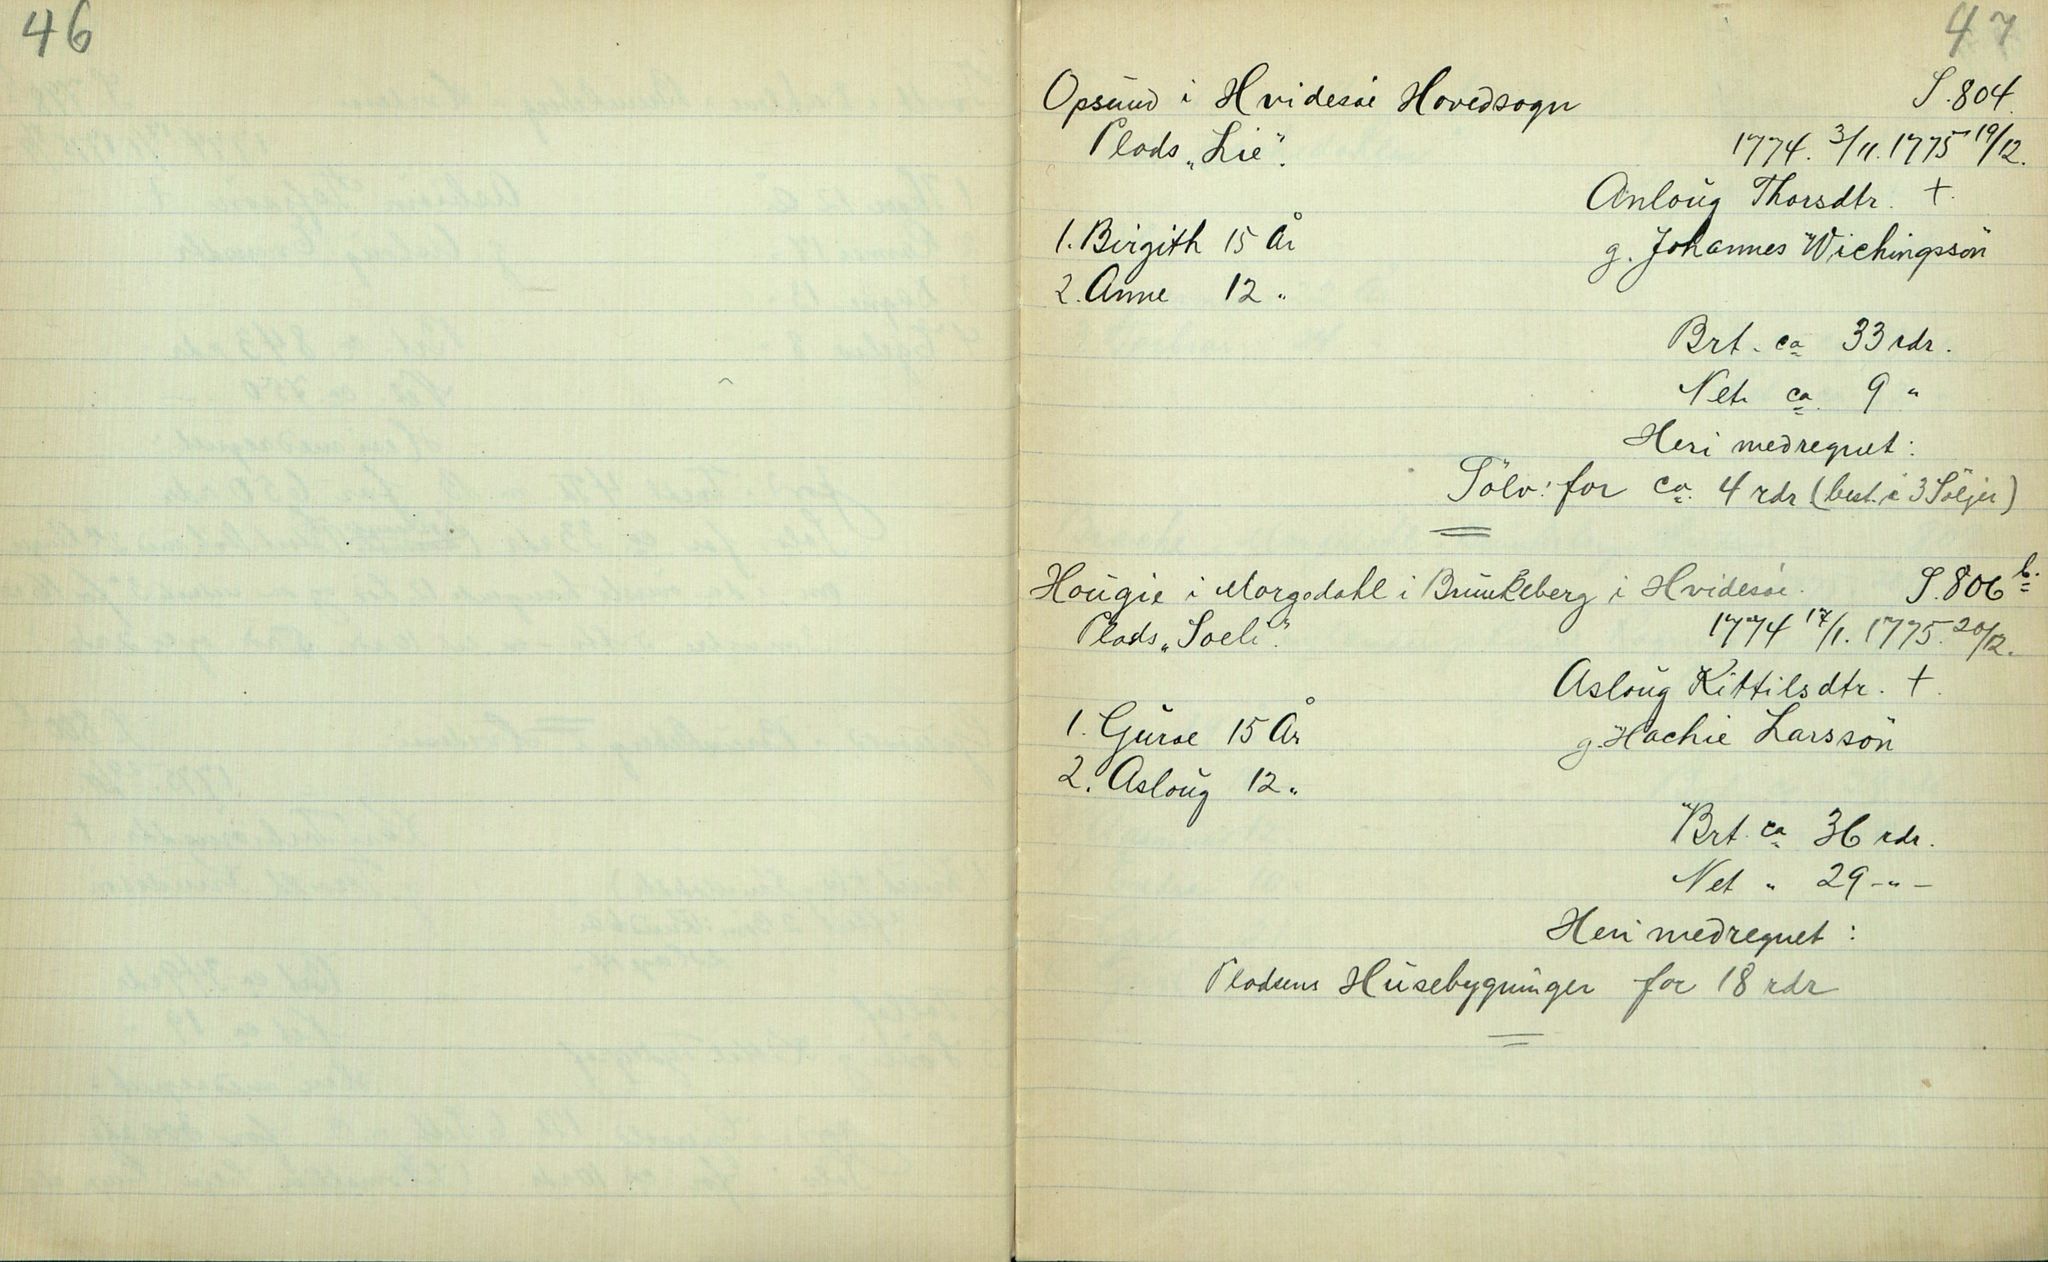 46
47
Opsund i Hvidesøe Hovedsogn S. 804.
Plads „Lie". 1774. 3/11. 1775 19/12.
Anloug Thorsdtr. †.
1. Birgith 15 År g. Johannes Wichingssön
2. Anne 12 "
Brt. ca 33 rdr.
Net. ca. 9 "
Heri medregnet:
Sölv: for ca. 4 rdr (best. i 3 Söljer)
Hougie i Morgedahl i Brunkeberg i Hvidesøe. S. 806 b.
Plads „Soeli". 1774 17/1. 1775. 20/12.
Asloug Kittilsdtr. †.
1. Guroe 15 År g. Hachie Larssön
2. Asloug 12 "
Brt. ca 36 rdr.
Net " 29 - " -
Heri medregnet:
Pladsens Husebygninger for 18 rdr